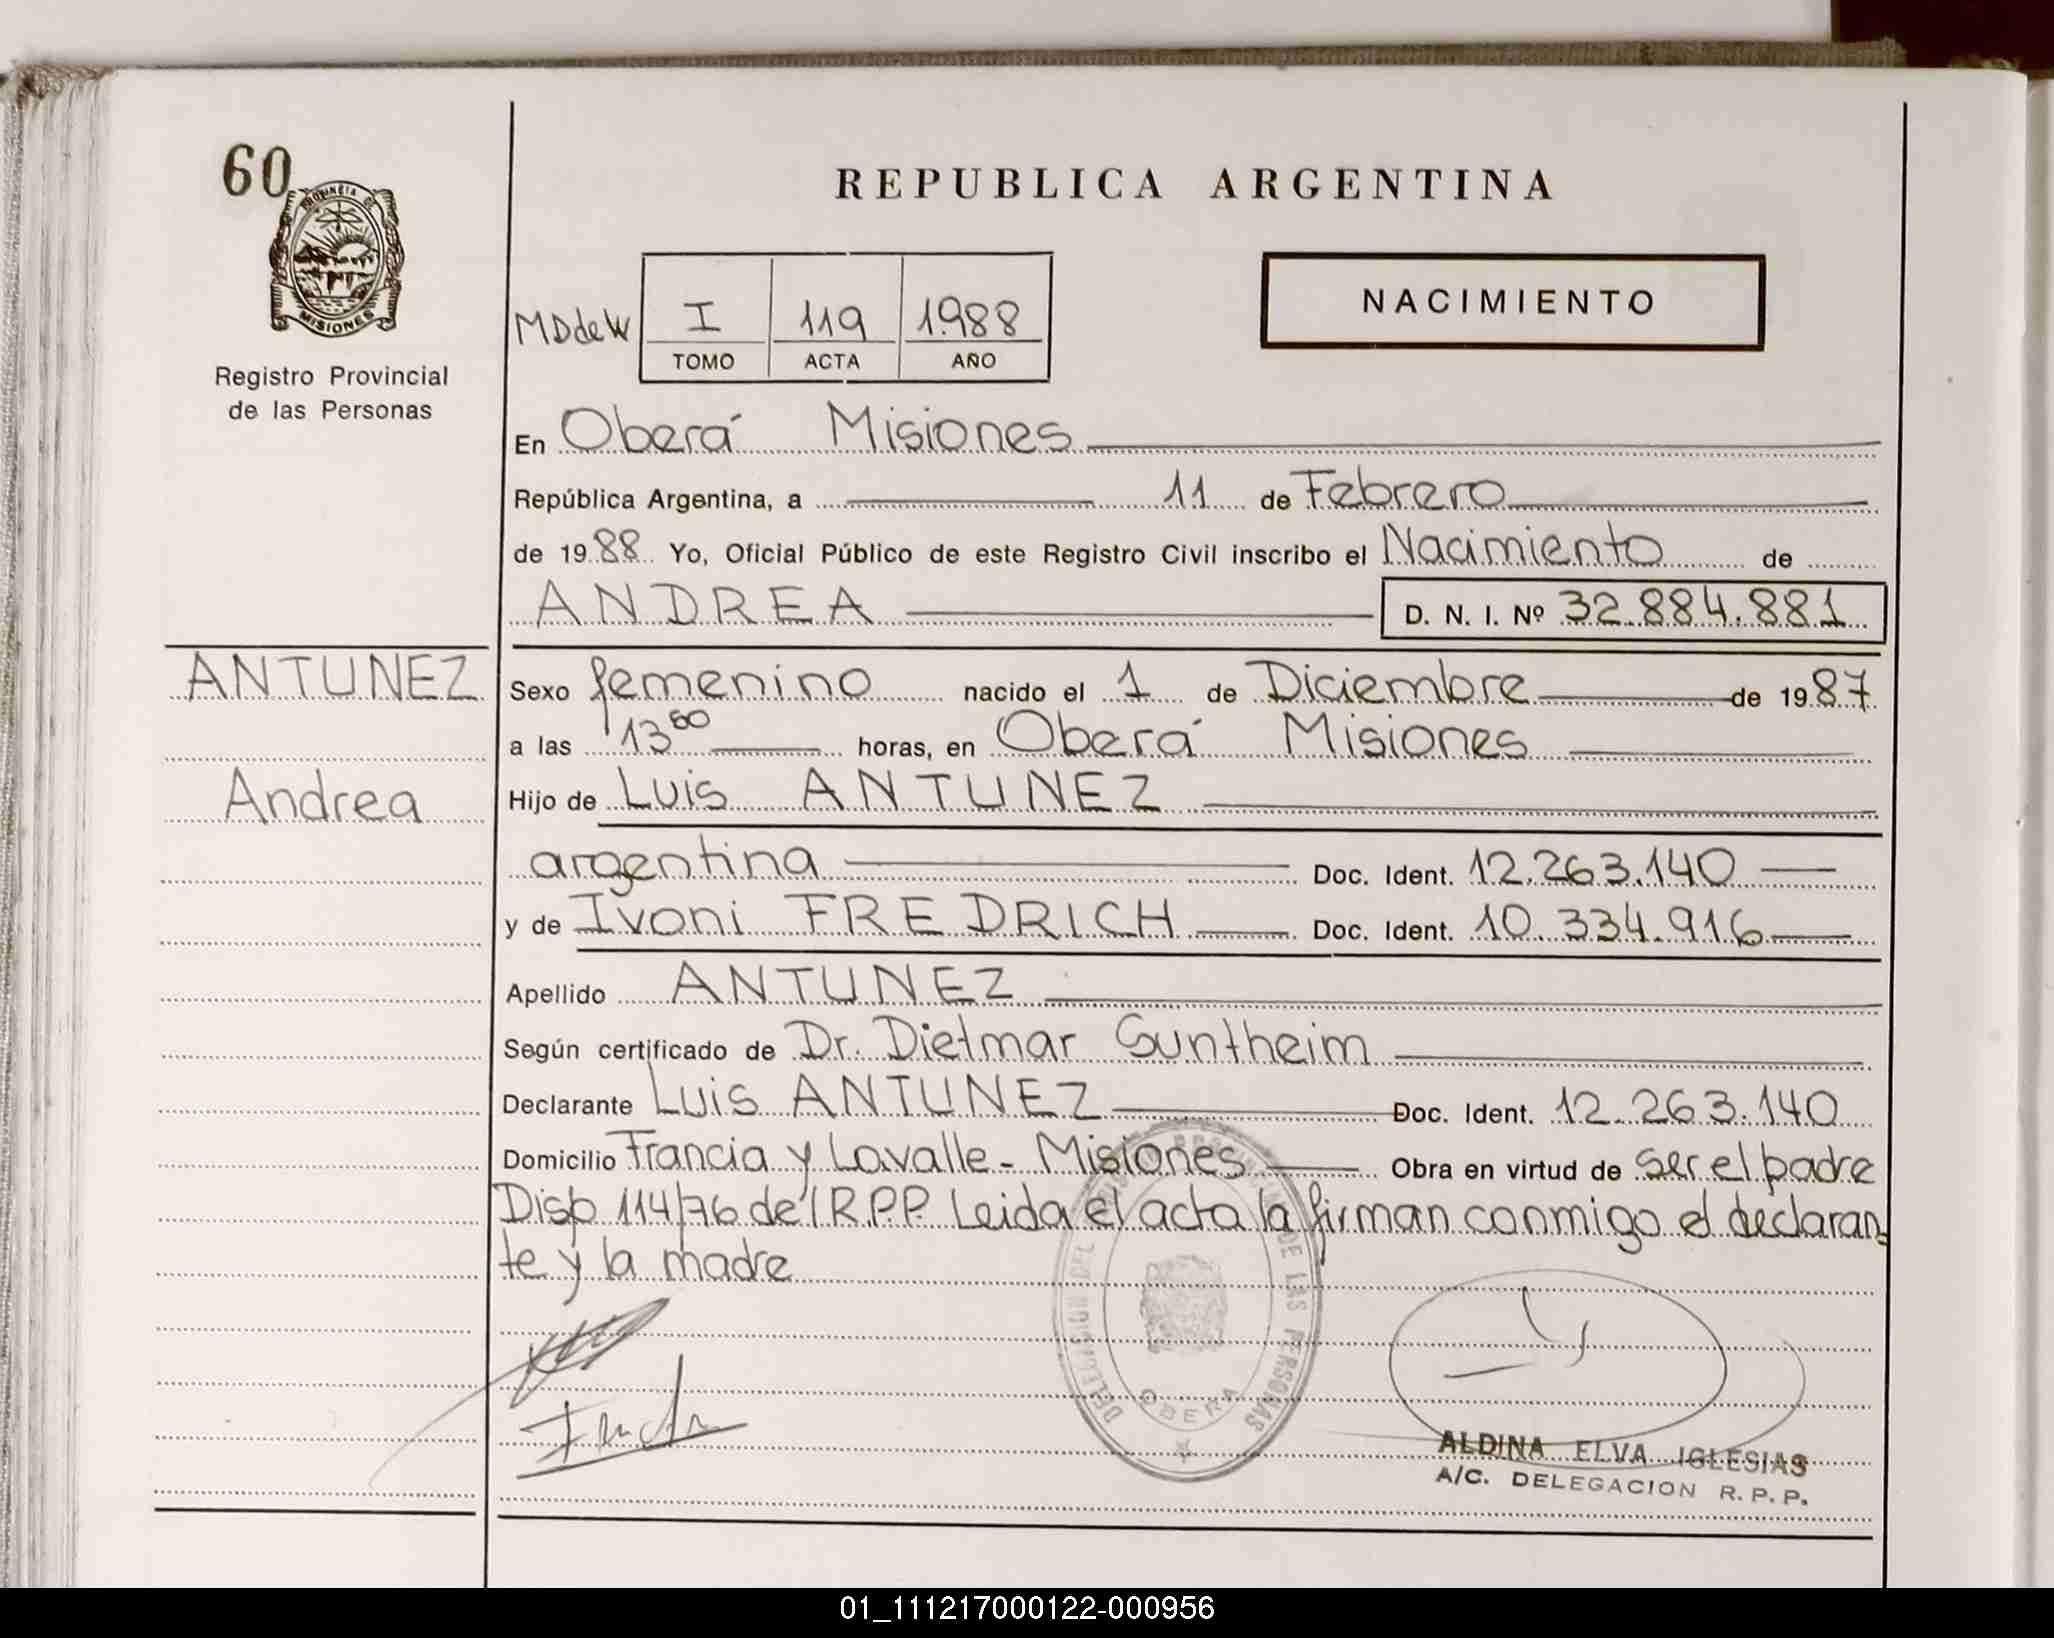 60
PROVINCIA DE
MISIONES
Registro Provincial
de las Personas
REPUBLICA ARGENTINA
MDdeW
I 119 1988
TOMO ACTA AÑO
NACIMIENTO
En Oberá Misiones
República Argentina, a 11 de Febrero
de 1988 Yo, Oficial Público de este Registro Civil inscribo el Nacimiento de
ANDREA D. N. I. Nº 32.884.881
ANTUNEZ
Andrea
Sexo femenino nacido el 1 de Diciembre de 1987
a las 13 horas, en Oberá Misiones
Hijo de Luis ANTUNEZ
argentina Doc. Ident. 12.263.140
y de Ivoni FREDRICH Doc. Ident. 10.334.916
Apellido ANTUNEZ
Según certificado de Dr. Dietmar Suntheim
Declarante Luis ANTUNEZ Doc. Ident. 12.263.140
Domicilio Francia y Lavalle - Misiones Obra en virtud de ser el padre
Disp 114/76 del R.P.P. Leida el acta la firman conmigo el declaran-
te y la madre
DE LAS PERSONAS
OBERA
ALDINA ELVA IGLESIAS
A/C. DELEGACION R. P. P.
01_111217000122-000956